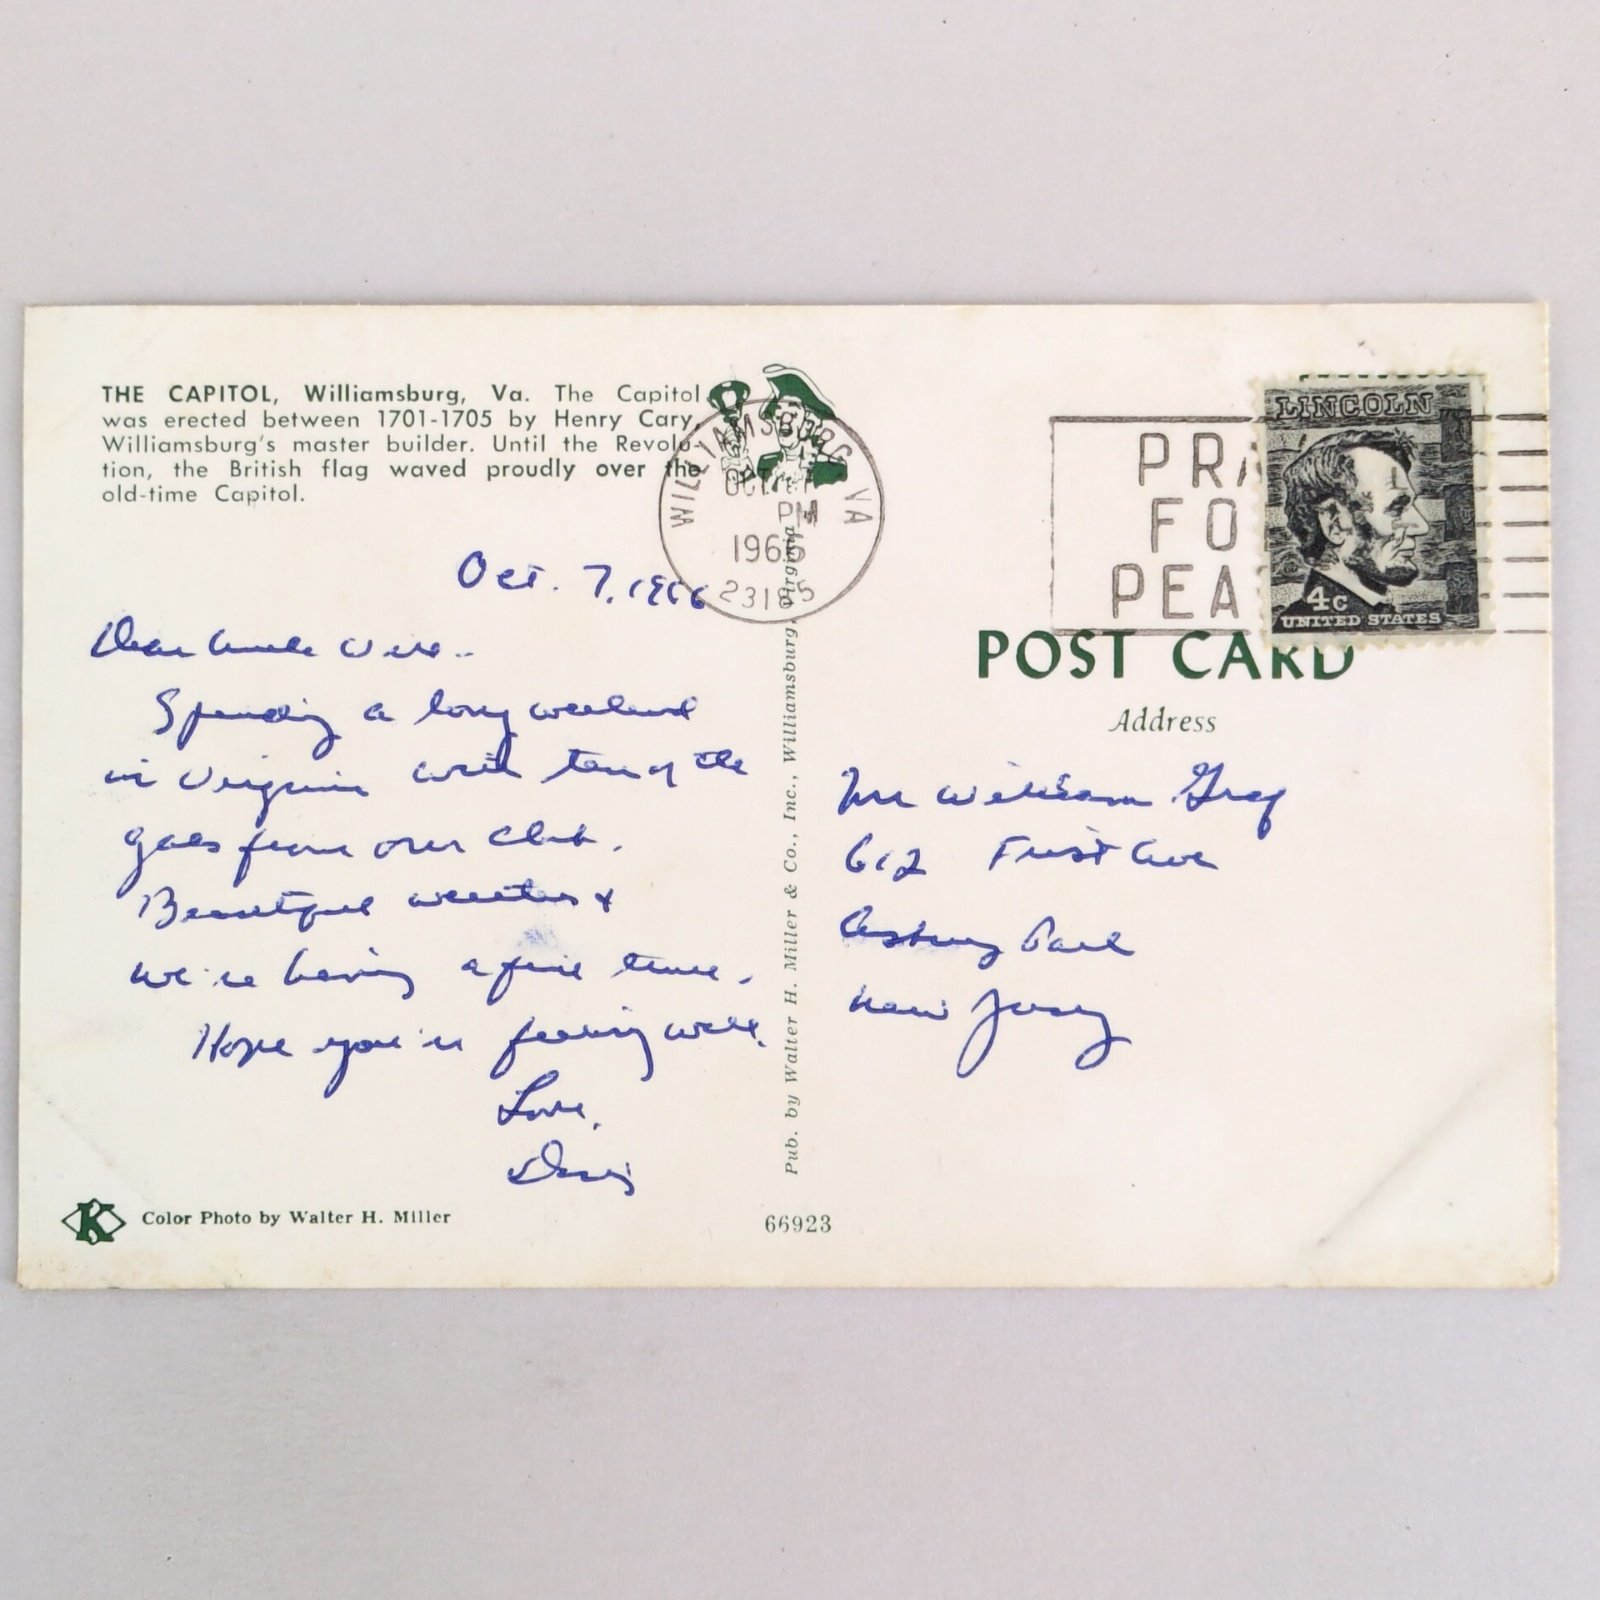 THE CAPITOL, Williamsburg, Va. The Capitol
was erected between 1701-1705 by Henry Cary,
Williamsburg's master builder. Until the Revolu-
tion, the British flag waved proudly over the
old-time Capitol.
WILLIAMSBURG VA
OCT
PM
1966
23185
PRA
FO
PEA
LINCOLN
4c
UNITED STATES
Oct. 7, 1966
Dear Uncle Will -
Spending a long weekend
in Virginia with ten of the
gals from our club.
Beautiful weather &
we're having a fine time.
Hope you're feeling well.
Love,
Doris
POST CARD
Address
Mr William
612 First Ave
Asbury Park
New Jersey
Pub. by Walter H. Miller & Co., Inc., Williamsburg, Virginia
Color Photo by Walter H. Miller
K
66923